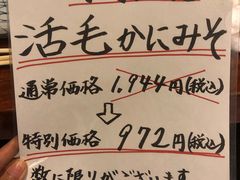 活毛かにみそ
通常価格 1,944円(税込)
⇩
特別価格 972円(税込)
数に限りがございます